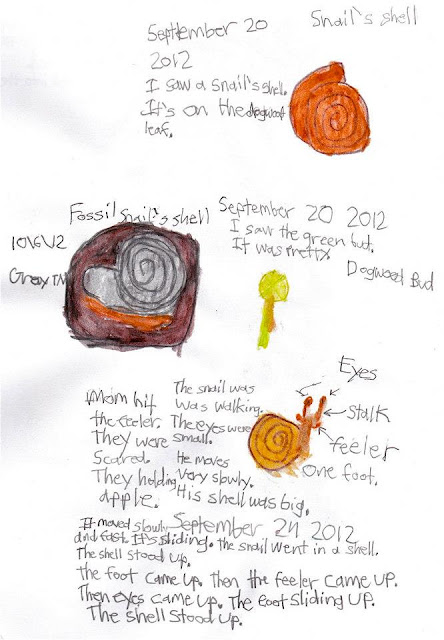 September 20
2012
I saw a snail's shell.
It's on the dogwood
leaf.
Snail's shell
Fossil snail's shell
10/6/12
Gray TN
September 20 2012
I saw the green bud.
It was pretty
Dogwood Bud
Eyes
Stalk
feeler
one foot.
Mom hit
the feeler.
They were
scared.
They holding
apple.
The snail was
was walking.
The eyes were
small.
He moves
very slowly.
His shell was big.
September 24 2012
It moved slowly
and fast. It's sliding. the snail went in a shell.
The shell stood up.
the foot came up. then the feeler came up.
Then eyes came up. The foot sliding up.
The shell stood up.